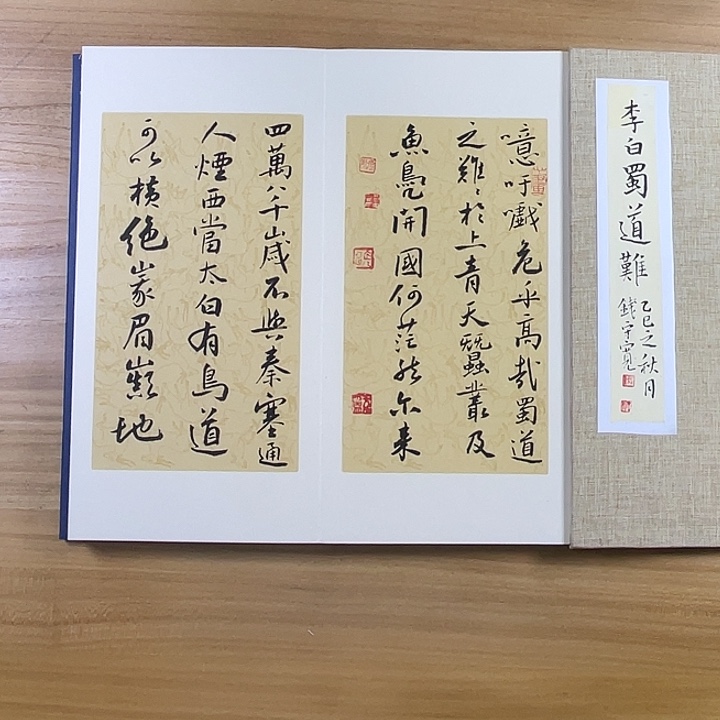 李白蜀道難
乙巳之秋月
錢宇寬
噫吁戲危乎高哉蜀道
之難〻於上青天蠶叢及
魚鳧開國何茫然尔来
四萬八千歲不與秦塞通
人煙西當太白有鳥道
可以橫絕峩眉巔地